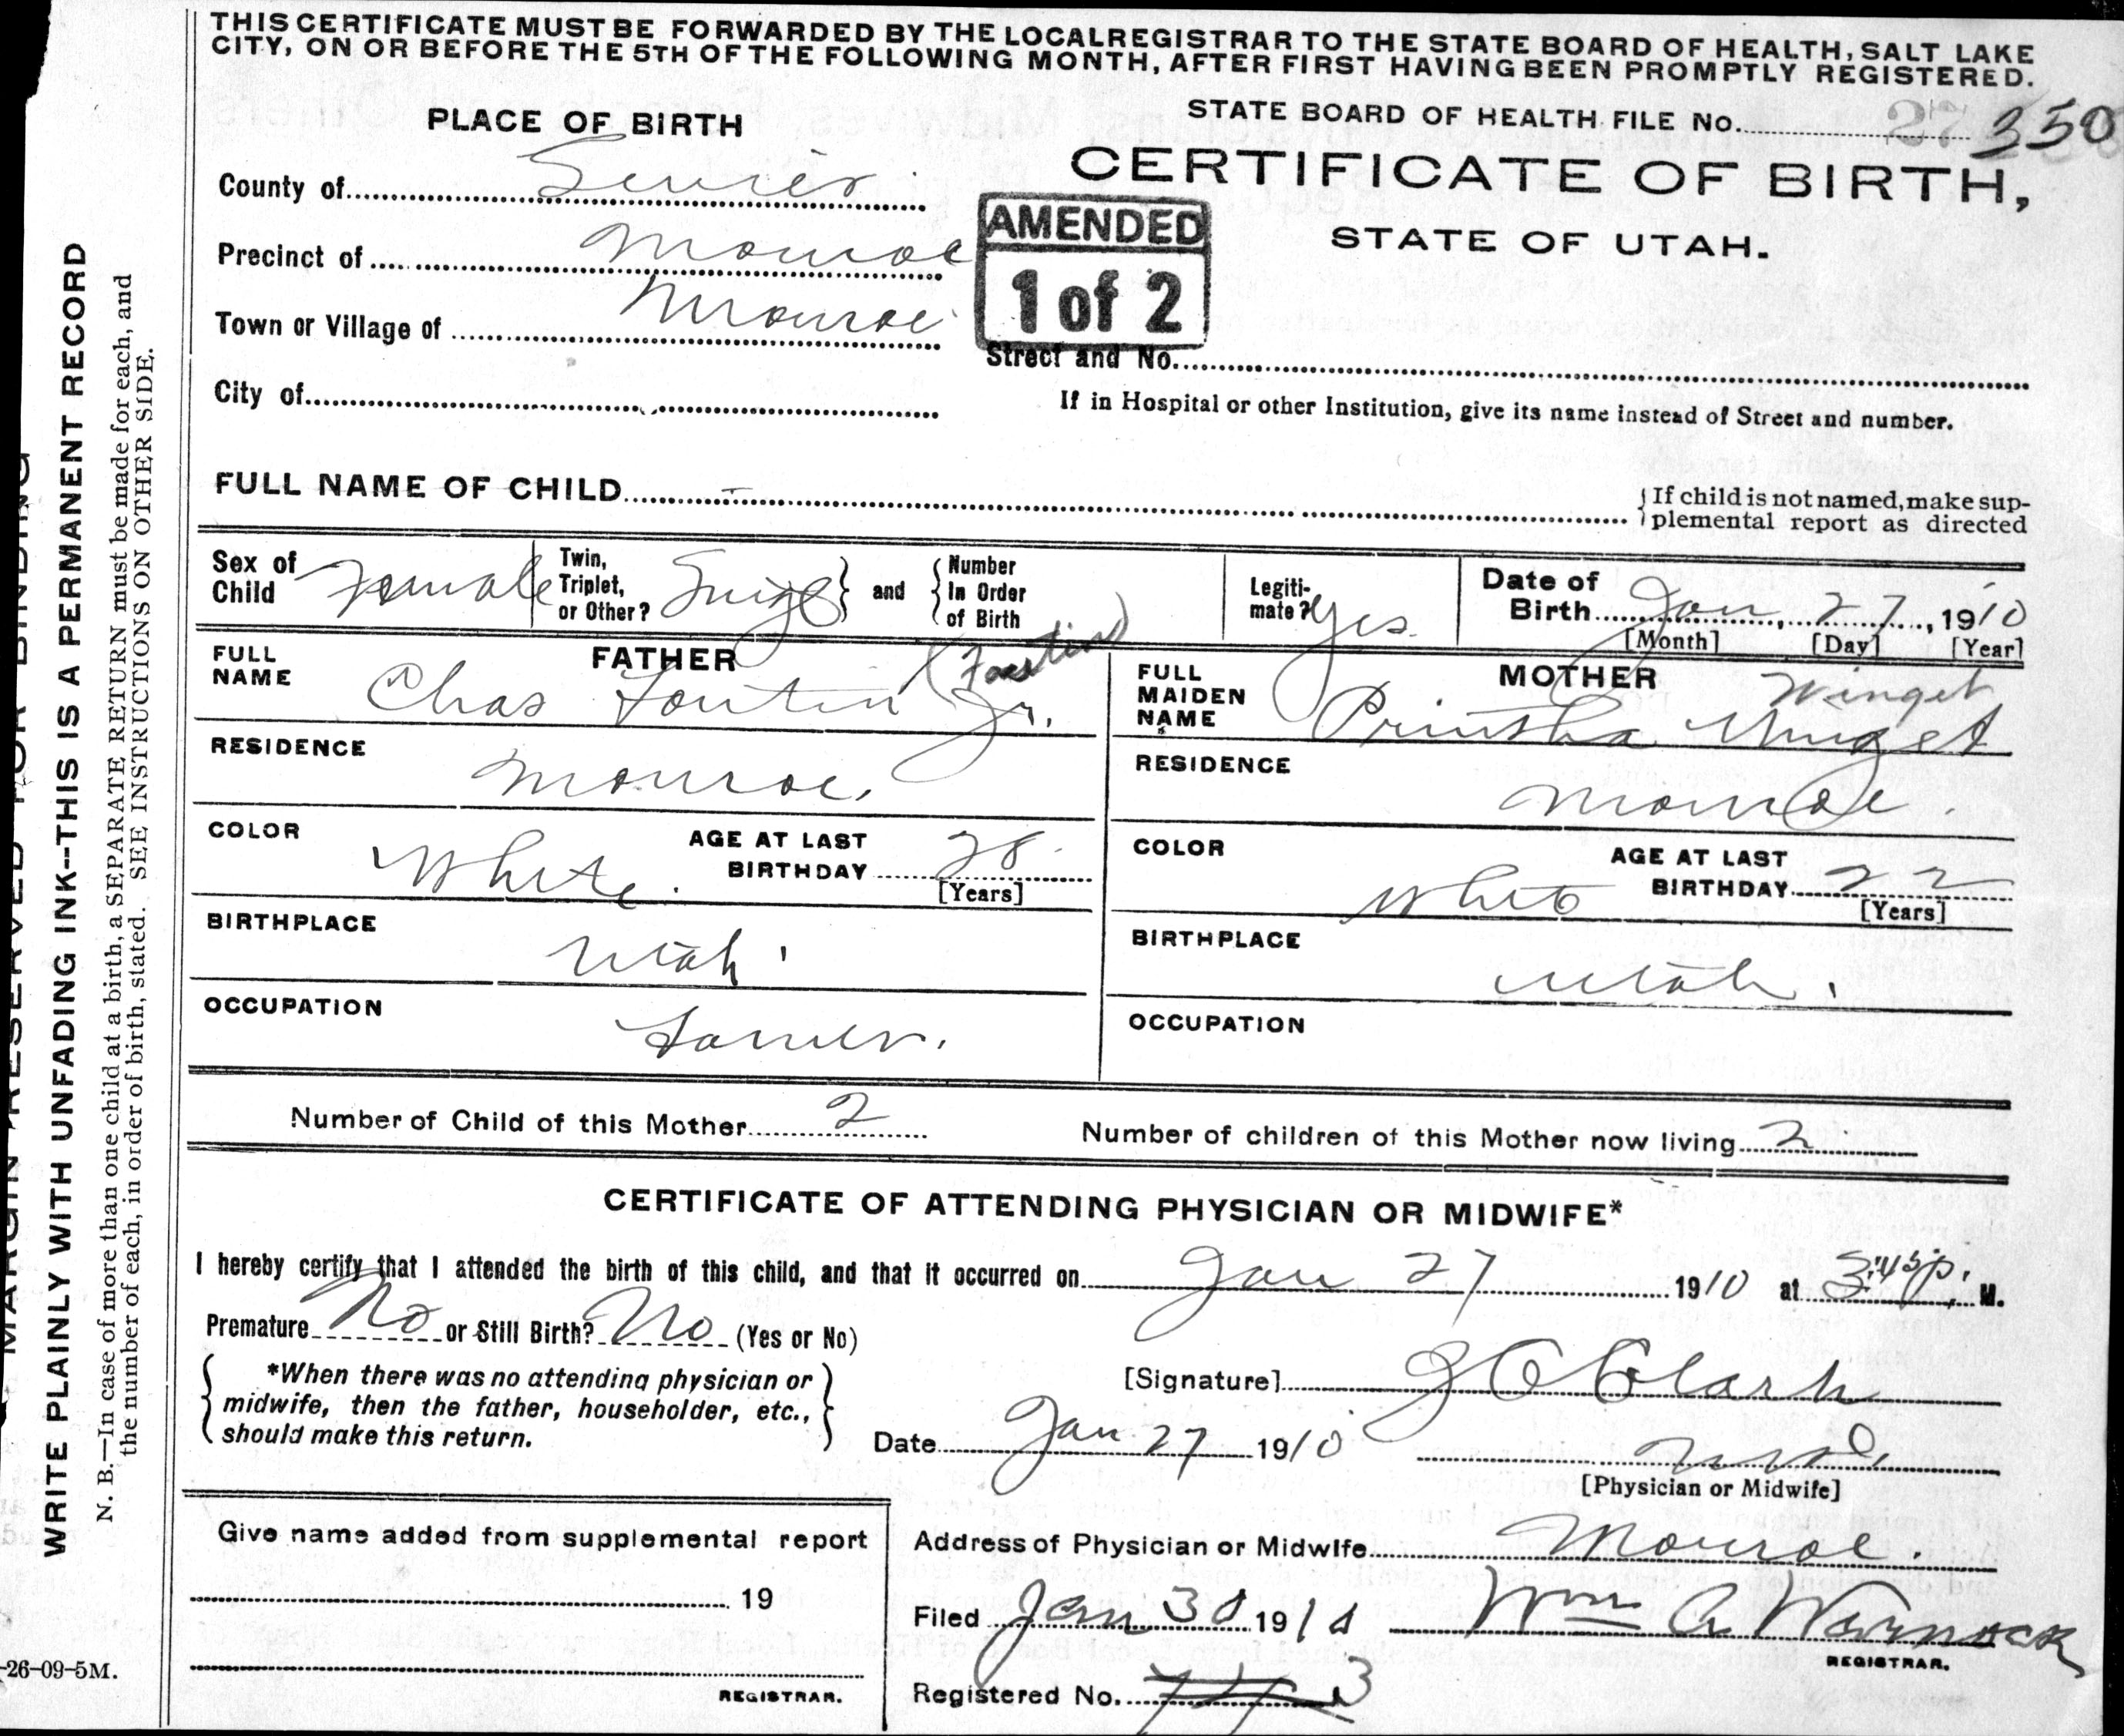 THIS CERTIFICATE MUST BE FORWARDED BY THE LOCAL REGISTRAR TO THE STATE BOARD OF HEALTH, SALT LAKE
CITY, ON OR BEFORE THE 5TH OF THE FOLLOWING MONTH, AFTER FIRST HAVING BEEN PROMPTLY REGISTERED.
STATE BOARD OF HEALTH FILE No. 350
PLACE OF BIRTH
CERTIFICATE OF BIRTH,
STATE OF UTAH.
AMENDED
1 of 2
County of Sevier
Precinct of Monroe
Town or Village of Monroe
Street and No.
City of
If in Hospital or other Institution, give its name instead of Street and number.
FULL NAME OF CHILD
{ If child is not named, make sup-
plemental report as directed
Sex of Child Female
Twin, Triplet, or Other? Single } and { Number In Order of Birth
Legiti-mate? Yes
Date of Birth Jan 27, 1910
[Month] [Day] [Year]
FATHER
FULL NAME Chas Fontin Jr.
RESIDENCE Monroe,
COLOR White.
AGE AT LAST BIRTHDAY 28
[Years]
BIRTHPLACE Utah
OCCUPATION Farmer.
MOTHER
FULL MAIDEN NAME Printha Winget
Winget
RESIDENCE Monroe.
COLOR White
AGE AT LAST BIRTHDAY 22
[Years]
BIRTHPLACE Utah.
OCCUPATION
Number of Child of this Mother 2
Number of children of this Mother now living 2
CERTIFICATE OF ATTENDING PHYSICIAN OR MIDWIFE*
I hereby certify that I attended the birth of this child, and that it occurred on Jan 27 1910 at 3:45 p. M.
Premature No or Still Birth? No (Yes or No)
{ *When there was no attending physician or
midwife, then the father, householder, etc.,
should make this return. }
[Signature] J C Clark
Date Jan 27 1910
M.D.
[Physician or Midwife]
Give name added from supplemental report
19
REGISTRAR.
Address of Physician or Midwife Monroe.
Filed Jan 30 1910 Wm A Warnock
REGISTRAR.
Registered No. 3
-26-09-5M.
MARGIN RESERVED FOR BINDING
WRITE PLAINLY WITH UNFADING INK--THIS IS A PERMANENT RECORD
N. B.—In case of more than one child at a birth, a SEPARATE RETURN must be made for each, and
the number of each, in order of birth, stated. SEE INSTRUCTIONS ON OTHER SIDE.